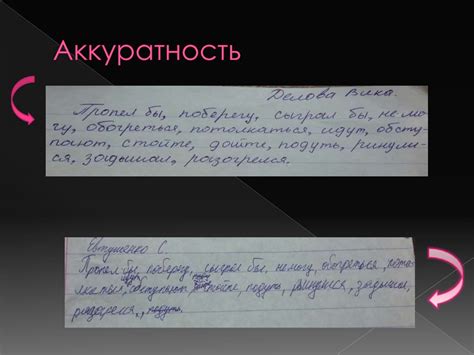 Аккуратность
Делова Вика.
Пропел бы, поберегу, сыграл бы, не мо-
гу, обогреться, потолкаться, идут, обсту-
пают, стойте, дойте, подуть, ринули-
ся, задышал, разогрелся.
Евтушенко С.
Пропел бы, поберегу, сыграл бы, немогу, обогреться, пота-
подуть,
разогрелся, подуть.